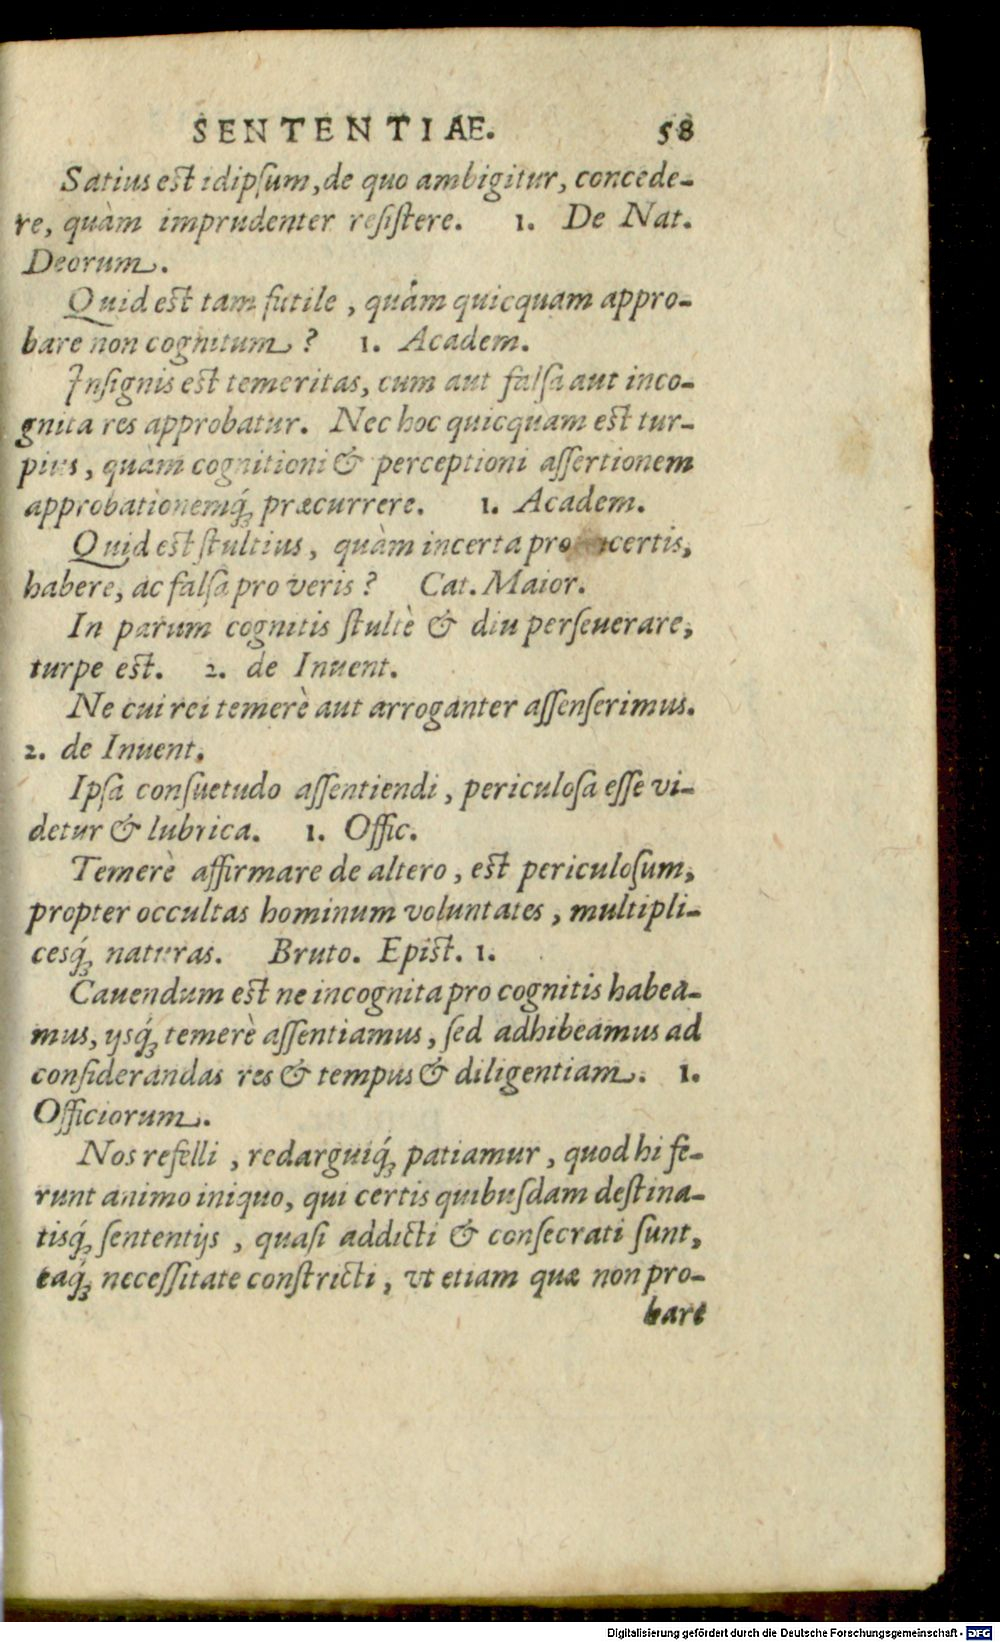 SENTENTIAE. 58
Satius est idipſum, de quo ambigitur, concede-
re, quàm imprudenter reſiſtere. 1. De Nat.
Deorum.
Quid est tam futile, quàm quicquam appro-
bare non cognitum? 1. Academ.
Inſignis est temeritas, cum aut falſa aut inco-
gnita res approbatur. Nec hoc quicquam est tur-
pius, quam cognitioni & perceptioni aſſertionem
approbationemq́; præcurrere. 1. Academ.
Quid est ſtultius, quàm incerta pro certis,
habere, ac falſa pro veris? Cat. Maior.
In parum cognitis ſtultè & diu perſeuerare,
turpe est. 2. de Inuent.
Ne cui rei temerè aut arroganter aſſenſerimus.
2. de Inuent.
Ipſa conſuetudo aſſentiendi, periculoſa eſſe vi-
detur & lubrica. 1. Offic.
Temerè affirmare de altero, est periculoſum,
propter occultas hominum voluntates, multipli-
cesq́; naturas. Bruto. Epist. 1.
Cauendum est ne incognita pro cognitis habea-
mus, ijsq́; temerè aſſentiamus, ſed adhibeamus ad
conſiderandas res & tempus & diligentiam. 1.
Officiorum.
Nos refelli, redarguiq́; patiamur, quod hi fe-
runt animo iniquo, qui certis quibuſdam deſtina-
tisq́; ſententijs, quaſi addicti & conſecrati ſunt,
eaq́; neceſſitate conſtricti, vt etiam quæ non pro-
bare
Digitalisierung gefördert durch die Deutsche Forschungsgemeinschaft - DFG